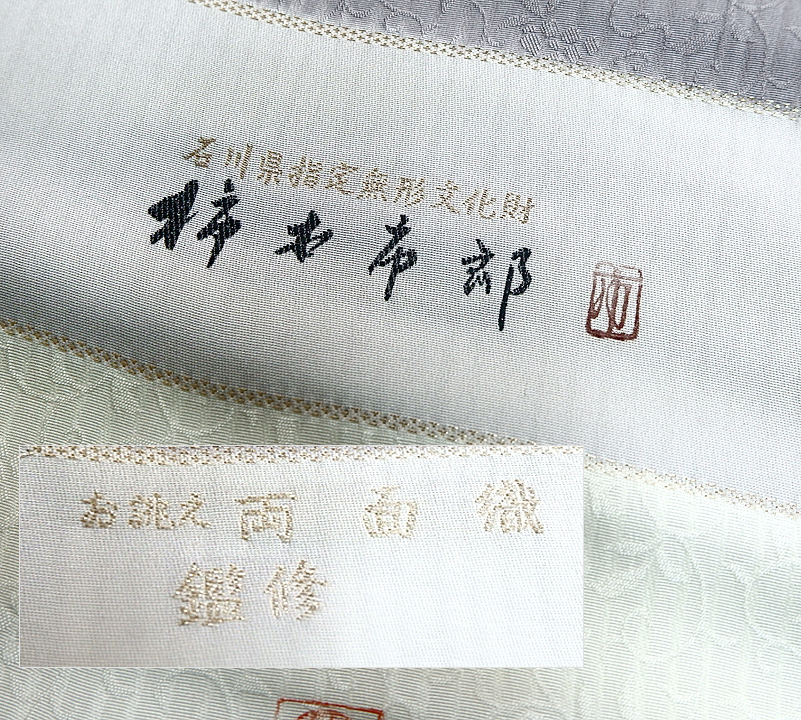 石川県指定無形文化財
柿本市郎
お誂え 両面織
鑑修